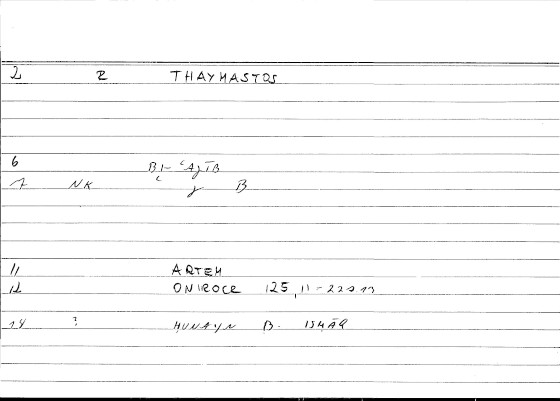 2 R THAYMASTOS
6 BI- ʿAǧĪB
7 NK B
11 ARTEM
12 ONIROCR 125,11-220,13
14 ? HUNAYN B. ISHĀQ